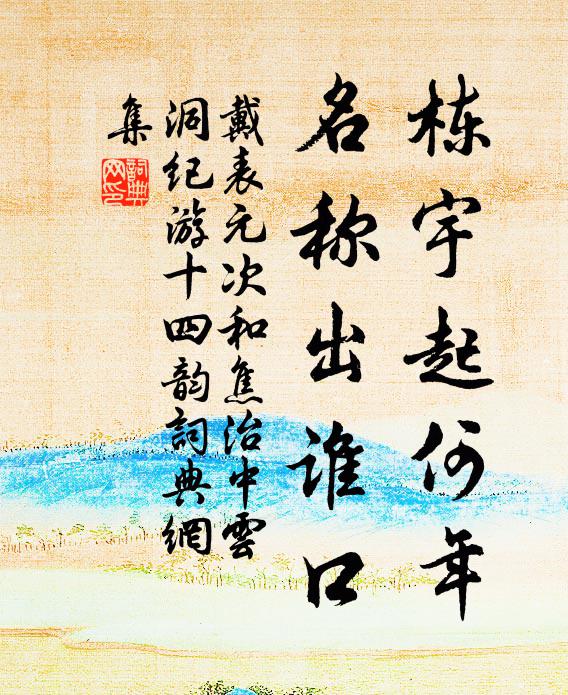 栋宇起何年
名称出谁口
戴表元次和焦治中雲
洞纪游十四韵詞典網
集
詞典網印